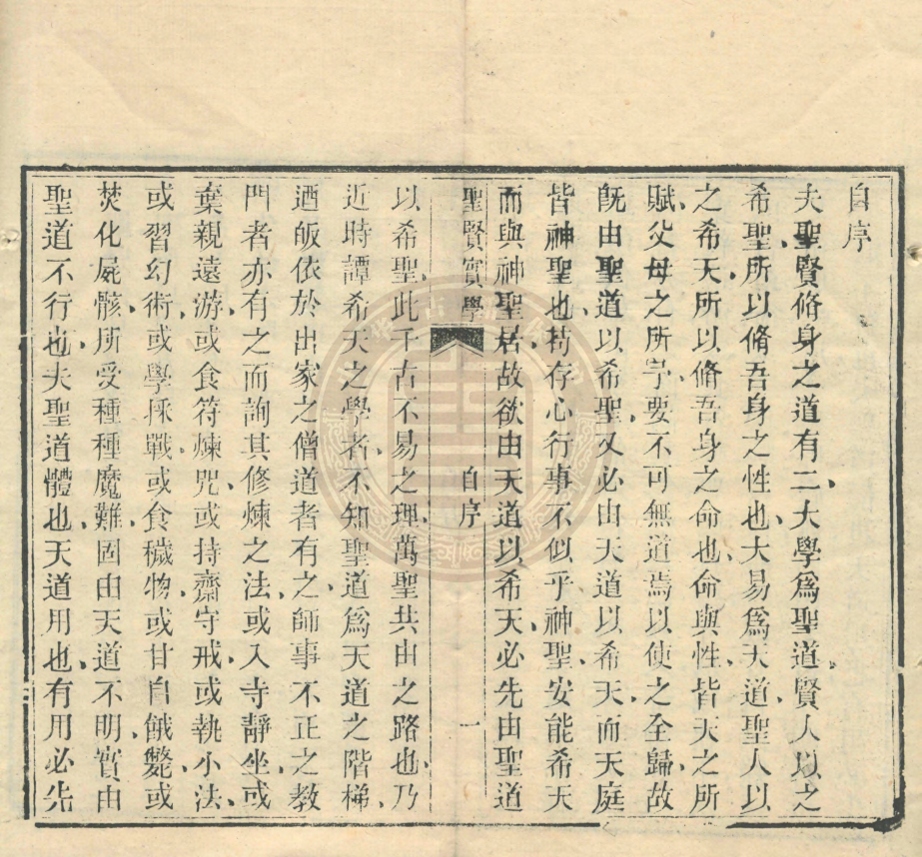 自序
夫聖賢脩身之道有二大學爲聖道賢人以之
希聖所以脩吾身之性也大易爲天道聖人以
之希天所以脩吾身之命也命與性皆天之所
賦父母之所予要不可無道焉以使之全歸故
旣由聖道以希聖又必由天道以希天而天庭
皆神聖也苟存心行事不似乎神聖安能希天
而與神聖居故欲由天道以希天必先由聖道
聖賢實學 自序 一
以希聖此千古不易之理萬聖共由之路也乃
近時譚希天之學者不知聖道爲天道之階梯
迺皈依於出家之僧道者有之師事不正之教
門者亦有之而詢其修煉之法或入寺靜坐或
棄親遠游或食符煉咒或持齋守戒或執小法
或習幻術或學採戰或食穢物或甘自餓斃或
焚化屍骸所受種種魔難固由天道不明實由
聖道不行也夫聖道體也天道用也有用必先